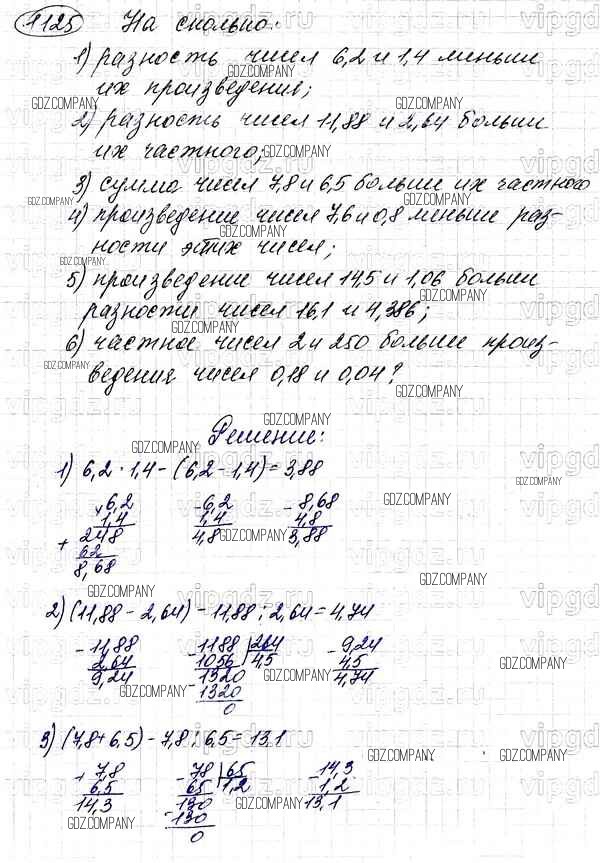 1125 На сколько:
1) разность чисел 6,2 и 1,4 меньше
их произведения;
2) разность чисел 11,88 и 2,64 больше
их частного;
3) сумма чисел 7,8 и 6,5 больше их частного
4) произведение чисел 7,6 и 0,8 меньше раз-
ности этих чисел;
5) произведение чисел 14,5 и 1,06 больше
разности чисел 16,1 и 4,386;
6) частное чисел 2 и 250 больше произ-
ведения чисел 0,18 и 0,04?
Решение:
1) 6,2 · 1,4 - (6,2 - 1,4) = 3,88
× 6,2 - 6,2 - 8,68
1,4 1,4 4,8
+ 248 4,8 3,88
62
8,68
2) (11,88 - 2,64) - 11,88 : 2,64 = 4,74
- 11,88 - 1188 | 264 - 9,24
2,64 1056 | 4,5 4,5
9,24 - 1320 4,74
1320
0
3) (7,8 + 6,5) - 7,8 : 6,5 = 13,1
+ 7,8 - 78 | 65 - 14,3
6,5 65 | 1,2 1,2
14,3 - 130 13,1
130
0
GDZ.COMPANY
vipgdz.ru